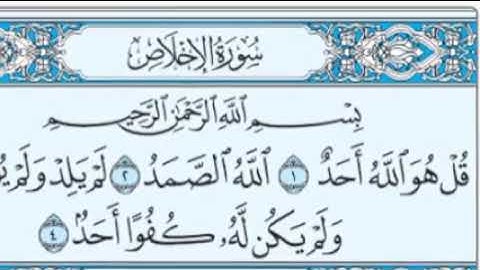 سُورَةُ الإِخْلَاصِ
بِسْمِ اللَّهِ الرَّحْمَٰنِ الرَّحِيمِ
قُلْ هُوَ اللَّهُ أَحَدٌ ١ اللَّهُ الصَّمَدُ ٢ لَمْ يَلِدْ وَلَمْ
وَلَمْ يَكُن لَّهُ كُفُوًا أَحَدٌ ٤